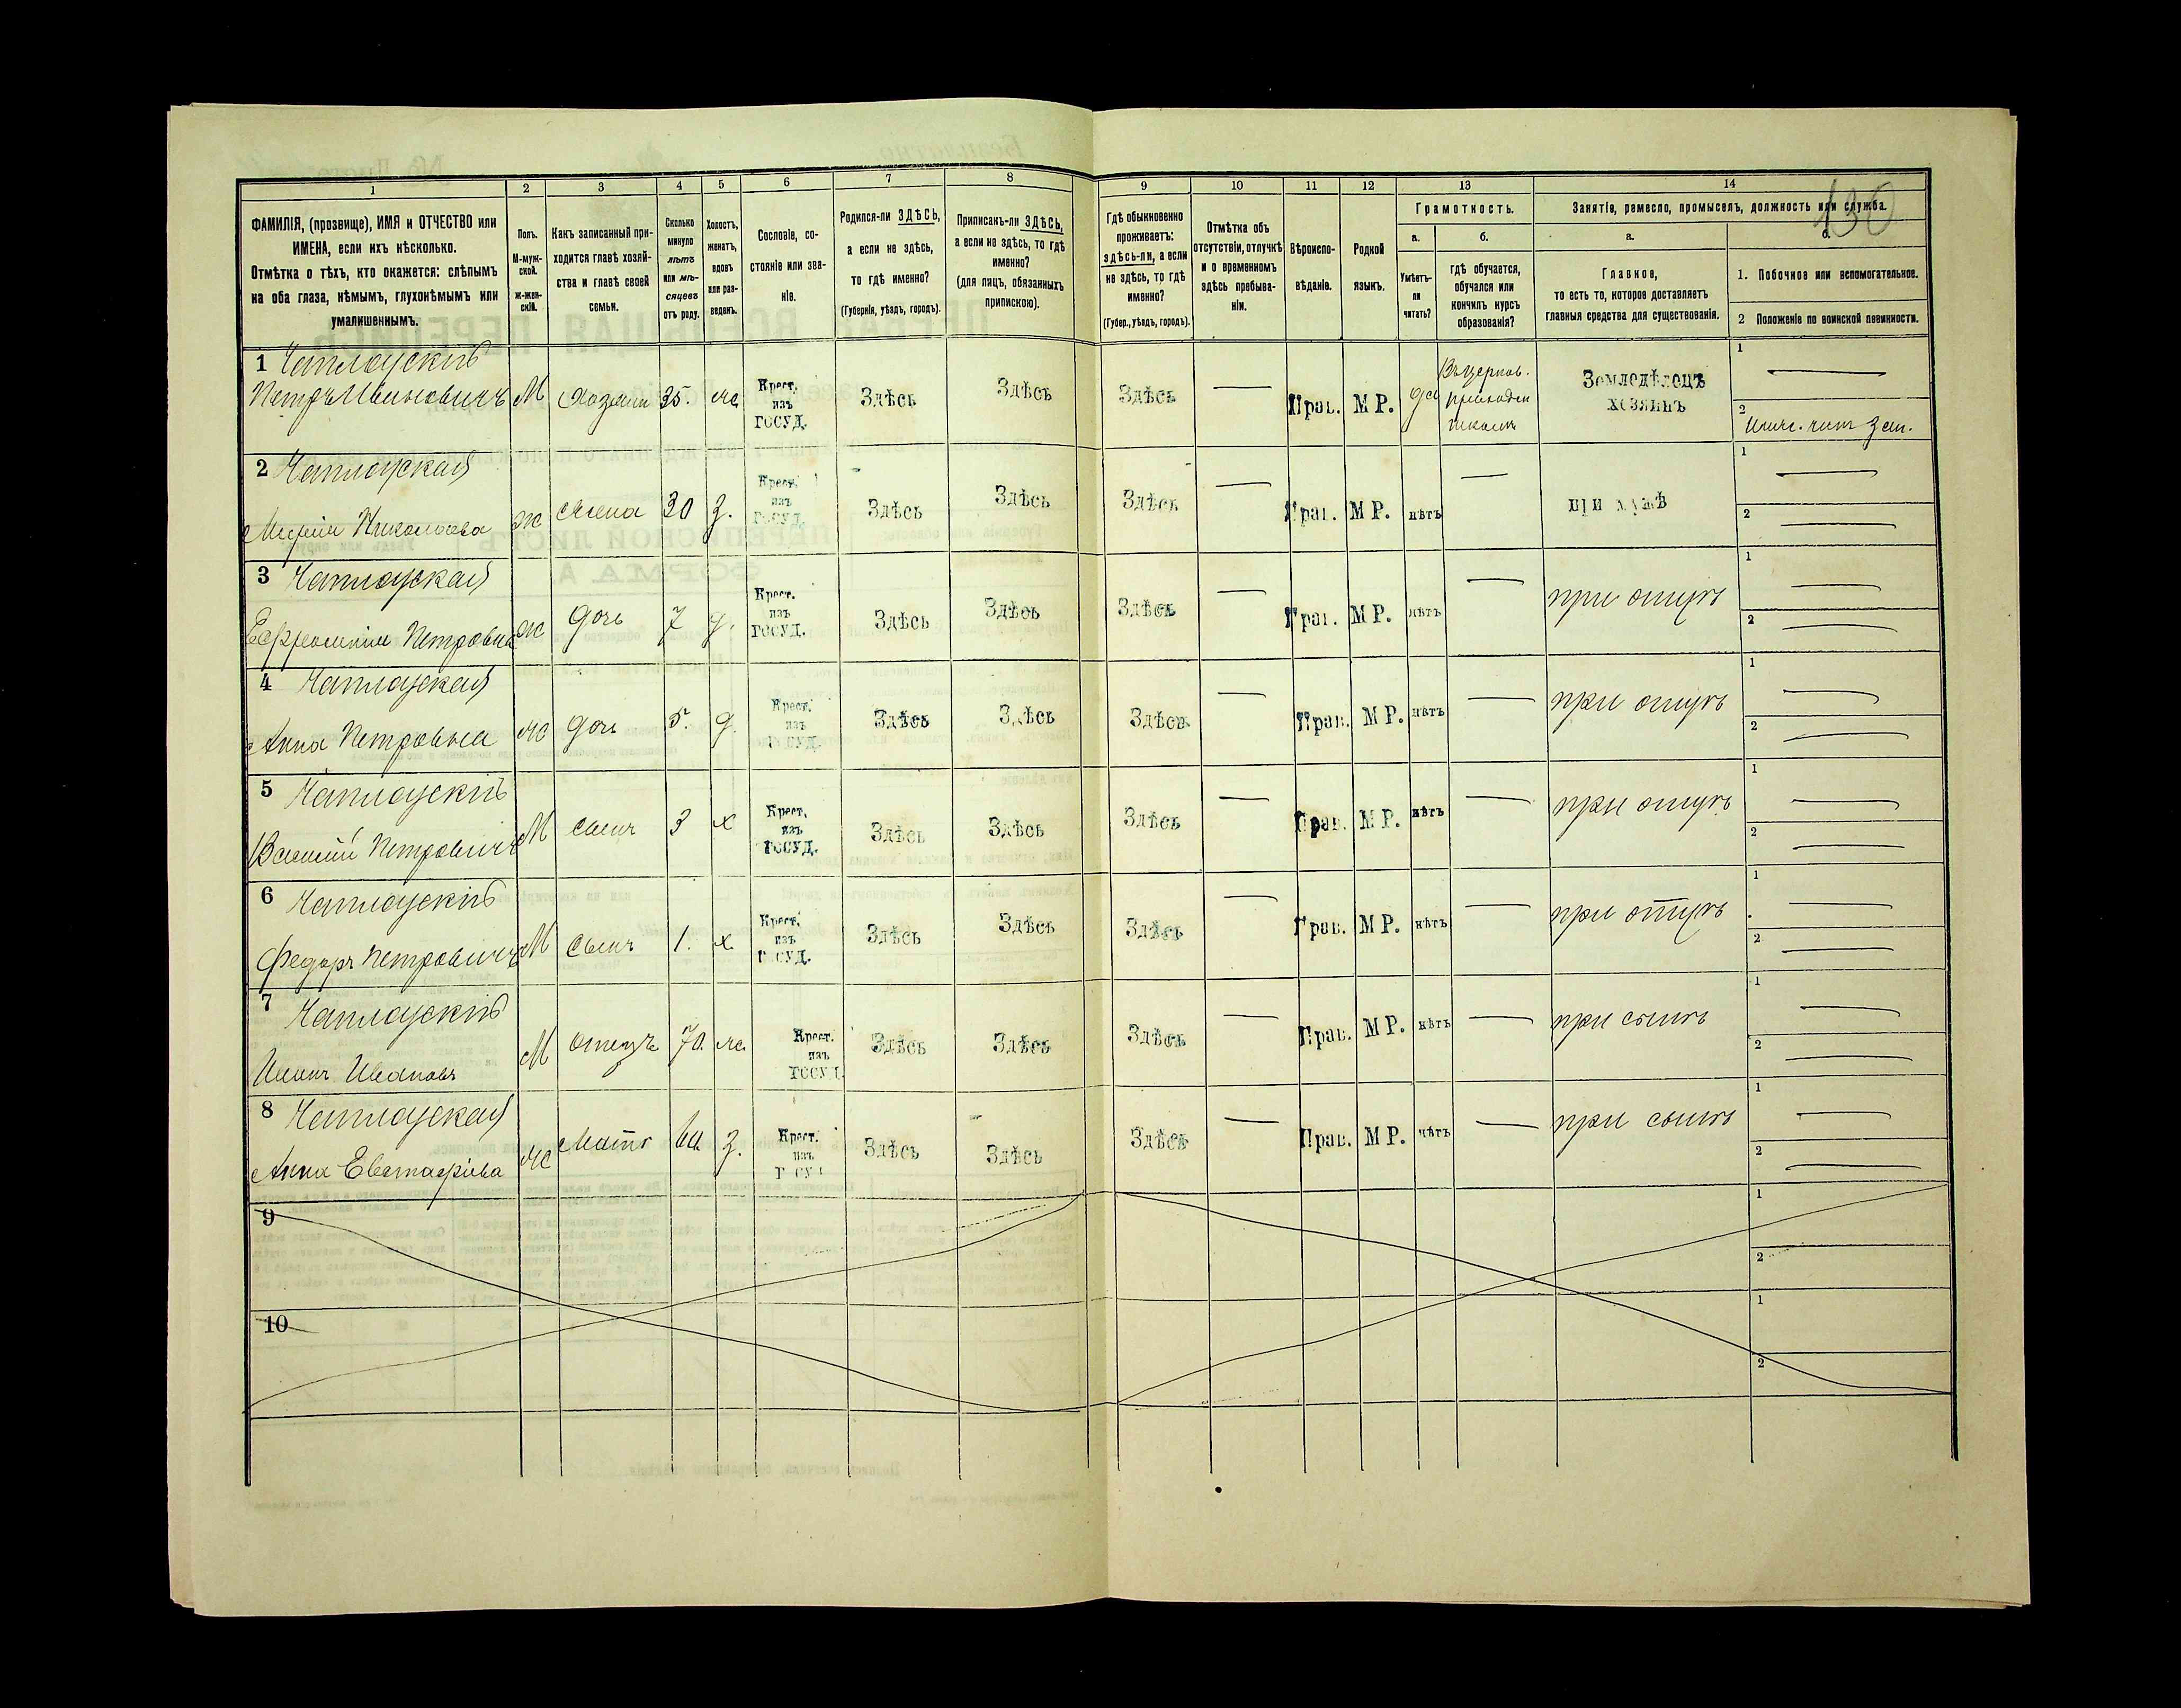 130
1 2 3 4 5 6 7 8 9 10 11 12 13 14
ФАМИЛІЯ, (прозвище), ИМЯ и ОТЧЕСТВО или
ИМЕНА, если ихъ нѣсколько.
Отмѣтка о тѣхъ, кто окажется: слѣпымъ
на оба глаза, нѣмымъ, глухонѣмымъ или
умалишеннымъ.
Полъ.
М-муж-
ской.
ж-жен-
скій.
Какъ записанный при-
ходится главѣ хозяй-
ства и главѣ своей
семьи.
Сколько
минуло
лѣтъ
или мѣ-
сяцевъ
отъ роду.
Холостъ,
женатъ,
вдовъ
или раз-
веденъ.
Сословіе, со-
стояніе или зва-
ніе.
Родился-ли ЗДѢСЬ,
а если не здѣсь,
то гдѣ именно?
(Губернія, уѣздъ, городъ).
Приписанъ-ли ЗДѢСЬ,
а если не здѣсь, то гдѣ
именно?
(для лицъ, обязанныхъ
припискою).
Гдѣ обыкновенно
проживаетъ:
здѣсь-ли, а если
не здѣсь, то гдѣ
именно?
(Губер., уѣздъ, городъ).
Отмѣтка объ
отсутствіи, отлучкѣ
и о временномъ
здѣсь пребыва-
ніи.
Вѣроиспо-
вѣданіе.
Родной
языкъ.
Грамотность.
а.
Умѣетъ-
ли
читать?
б.
гдѣ обучается,
обучался или
кончилъ курсъ
образованія?
Занятіе, ремесло, промыселъ, должность или служба.
а.
Главное,
то есть то, которое доставляетъ
главныя средства для существованія.
б.
1. Побочное или вспомогательное.
2 Положеніе по воинской повинности.
1 Чаплоускій
Петръ Ивановичъ М Хозяин 35. ж. Крест. изъ ГОСУД. Здѣсь Здѣсь Здѣсь — Прав. МР. да Въ церков. приходск школѣ Земледѣлецъ хозяинъ 1 — 2
2 Чаплоуская
Марія Николаева ж жена 30 з. Крест. изъ ГОСУД. Здѣсь Здѣсь Здѣсь — Прав. МР. нѣтъ — при мужѣ 1 — 2 —
3 Чаплоуская
Ефросинія Петровна ж дочь 7 д. Крест. изъ ГОСУД. Здѣсь Здѣсь Здѣсь — Прав. МР. нѣтъ — при отцѣ 1 — 2 —
4 Чаплоуская
Анна Петровна ж дочь 5. д. Крест. изъ ГОСУД. Здѣсь Здѣсь Здѣсь — Прав. МР. нѣтъ — при отцѣ 1 — 2 —
5 Чаплоускій
Василій Петровичъ М сынъ 3 х Крест. изъ ГОСУД. Здѣсь Здѣсь Здѣсь — Прав. МР. нѣтъ — при отцѣ 1 — 2 —
6 Чаплоускій
Федоръ Петровичъ М сынъ 1. х. Крест. изъ ГОСУД. Здѣсь Здѣсь Здѣсь — Прав. МР. нѣтъ — при отцѣ 1 — 2 —
7 Чаплоускій
Ивановъ М отецъ 70. ж. Крест. изъ ГОСУД. Здѣсь Здѣсь Здѣсь — Прав. МР. нѣтъ — при сынѣ 1 — 2 —
8 Чаплоуская
Анна Евстафіева ж Мать з. Крест. изъ ГОСУД. Здѣсь Здѣсь Здѣсь — Прав. МР. нѣтъ — при сынѣ 1 — 2 —
9 1 2
10 1 2